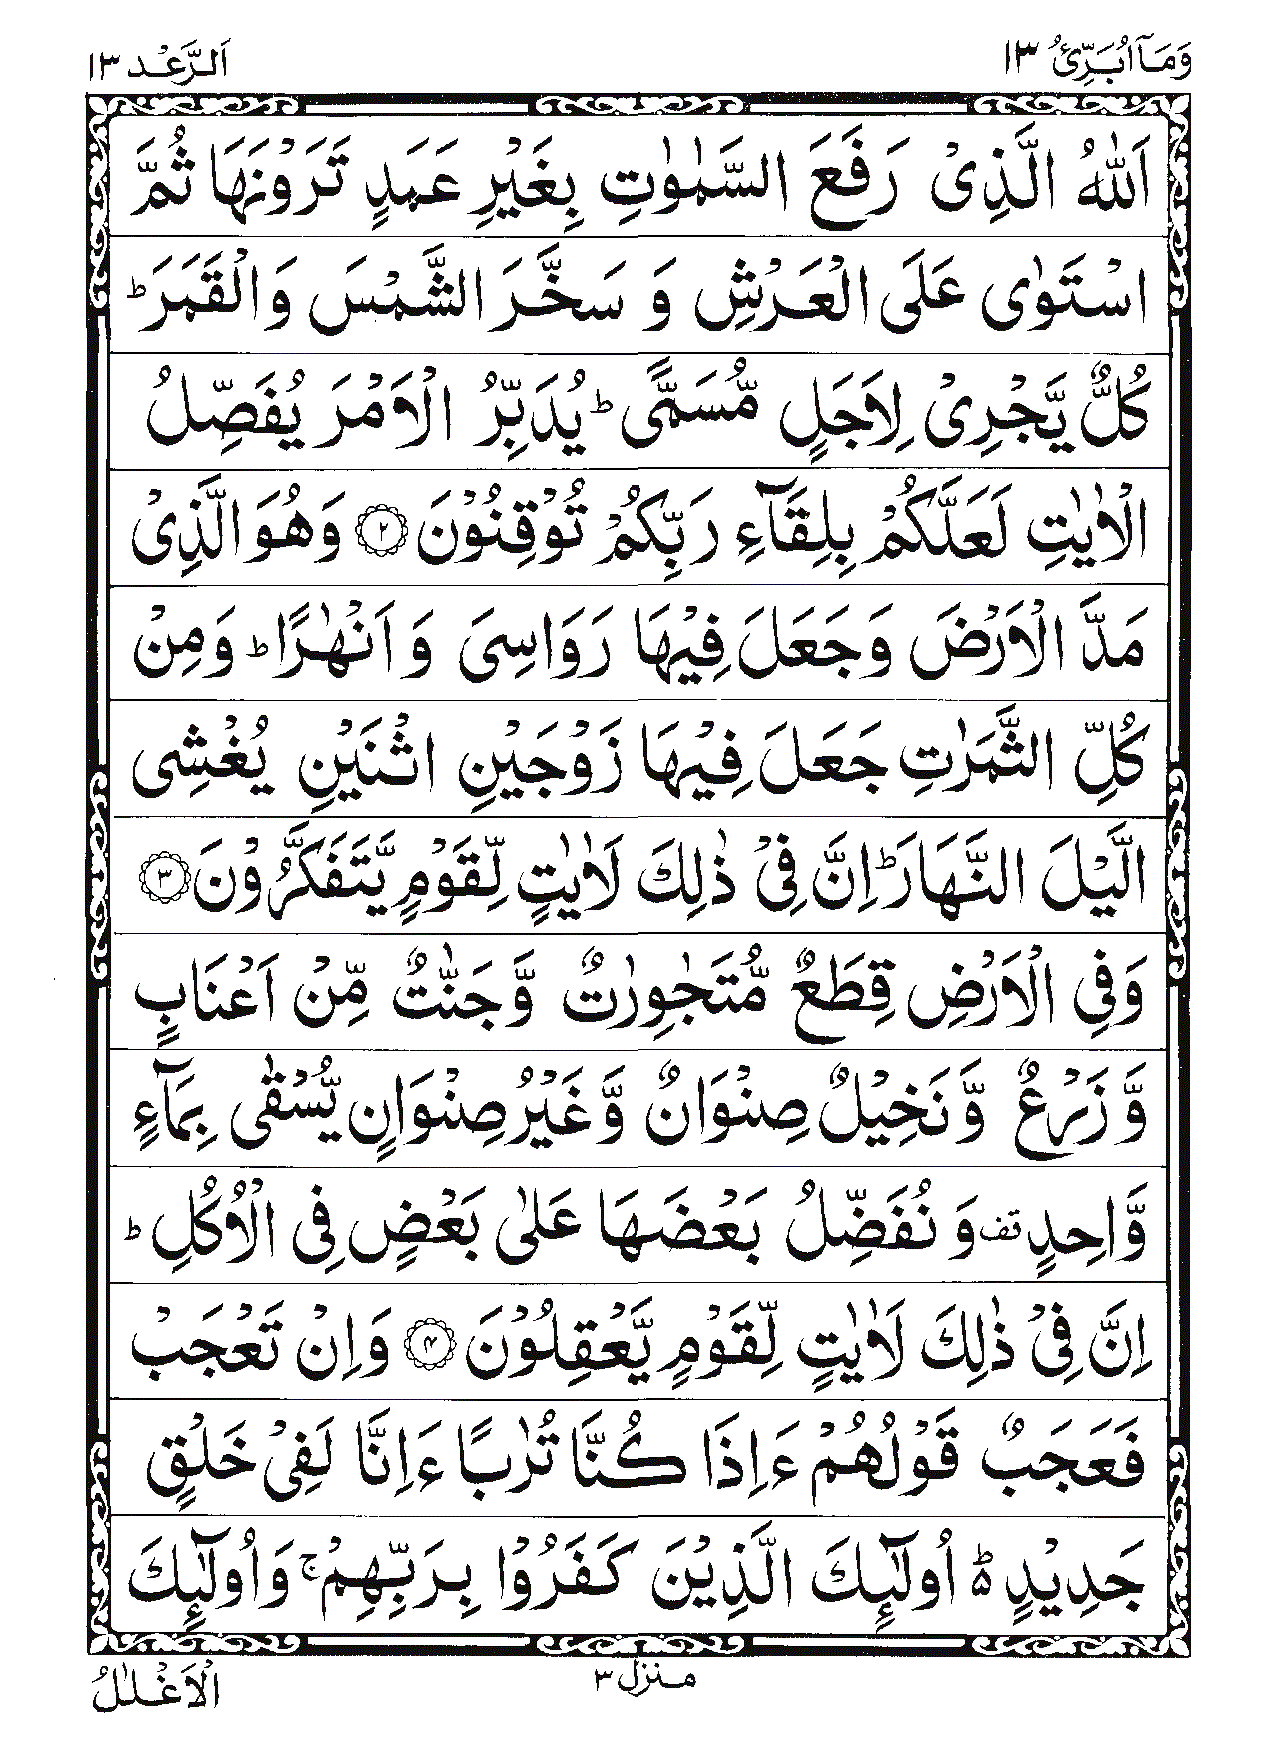 وَمَاۤ اُبَرِّئُ ١٣
اَلرَّعْد ١٣
اَللّٰهُ الَّذِىْ رَفَعَ السَّمٰوٰتِ بِغَيْرِ عَمَدٍ تَرَوْنَهَا ثُمَّ
اسْتَوٰى عَلَى الْعَرْشِ وَ سَخَّرَ الشَّمْسَ وَالْقَمَرَ ؕ
كُلٌّ يَّجْرِىْ لِاَجَلٍ مُّسَمًّى ؕ يُدَبِّرُ الْاَمْرَ يُفَصِّلُ
الْاٰيٰتِ لَعَلَّكُمْ بِلِقَآءِ رَبِّكُمْ تُوْقِنُوْنَ ۝٢ وَهُوَ الَّذِىْ
مَدَّ الْاَرْضَ وَجَعَلَ فِيْهَا رَوَاسِىَ وَ اَنْهٰرًا ؕ وَمِنْ
كُلِّ الثَّمَرٰتِ جَعَلَ فِيْهَا زَوْجَيْنِ اثْنَيْنِ يُغْشِى
الَّيْلَ النَّهَارَ ؕ اِنَّ فِىْ ذٰلِكَ لَاٰيٰتٍ لِّقَوْمٍ يَّتَفَكَّرُوْنَ ۝٣
وَفِى الْاَرْضِ قِطَعٌ مُّتَجٰوِرٰتٌ وَّجَنّٰتٌ مِّنْ اَعْنَابٍ
وَّ زَرْعٌ وَّ نَخِيْلٌ صِنْوَانٌ وَّغَيْرُ صِنْوَانٍ يُّسْقٰى بِمَآءٍ
وَّاحِدٍ قف وَ نُفَضِّلُ بَعْضَهَا عَلٰى بَعْضٍ فِى الْاُكُلِ ؕ
اِنَّ فِىْ ذٰلِكَ لَاٰيٰتٍ لِّقَوْمٍ يَّعْقِلُوْنَ ۝٤ وَاِنْ تَعْجَبْ
فَعَجَبٌ قَوْلُهُمْ ءَاِذَا كُنَّا تُرٰبًا ءَاِنَّا لَفِىْ خَلْقٍ
جَدِيْدٍ ۬ؕ اُولٰٓئِكَ الَّذِيْنَ كَفَرُوْا بِرَبِّهِمْ ۚ وَاُولٰٓئِكَ
منزل ٣
الْاَغْلٰلُ